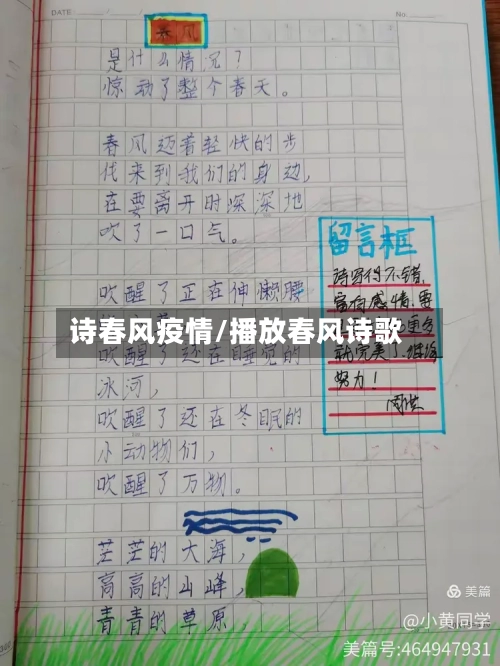 DATE
No.
春风
是什么情况?
惊动了整个春天。
春风迈着轻快的步
伐来到我们的身边,
在要离开时深深地
吹了一口气。
吹醒了正在伸懒腰
诗春风疫情/播放春风诗歌
吹醒了还在睡觉的
冰河,
吹醒了还在冬眠的
小动物们,
吹醒了万物。
茫茫的大海,
高高的山峰,
青青的草原,
留言框
诗写得不错,
富有感情,要
更多
就完美了,继续
努力!
美篇
@小黄同学
美篇号:464947931